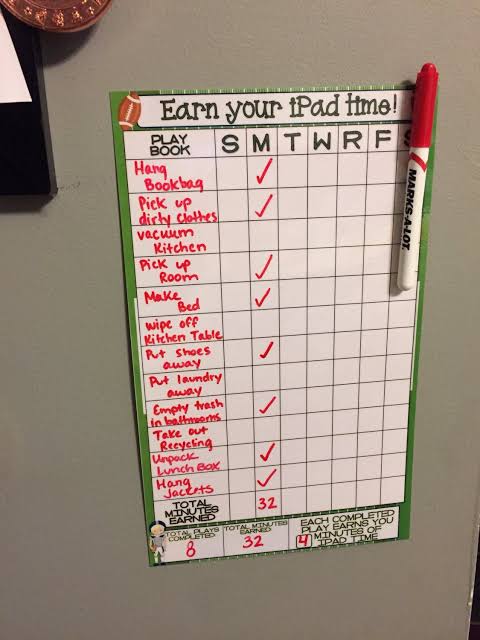 Earn your iPad time!
PLAY BOOK S M T W R F
Hang
Bookbag
Pick up
dirty clothes
vacuum
Kitchen
Pick up
Room
Make
Bed
wipe off
Kitchen Table
Put shoes
away
Put laundry
away
Empty trash
in bathrooms
Take out
Recycling
Unpack
Lunch Box
Hang
Jackets
TOTAL
MINUTES
EARNED
32
TOTAL PLAYS
COMPLETED
8
TOTAL MINUTES
EARNED
32
EACH COMPLETED
PLAY EARNS YOU
4 MINUTES OF
IPAD TIME
MARKS-A-LOT